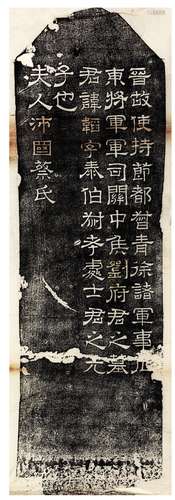 晉故使持節都督青徐諸軍事征
東將軍軍司關中侯劉府君之墓
君諱韜字泰伯考處士君之元
子也
夫人沛國蔡氏